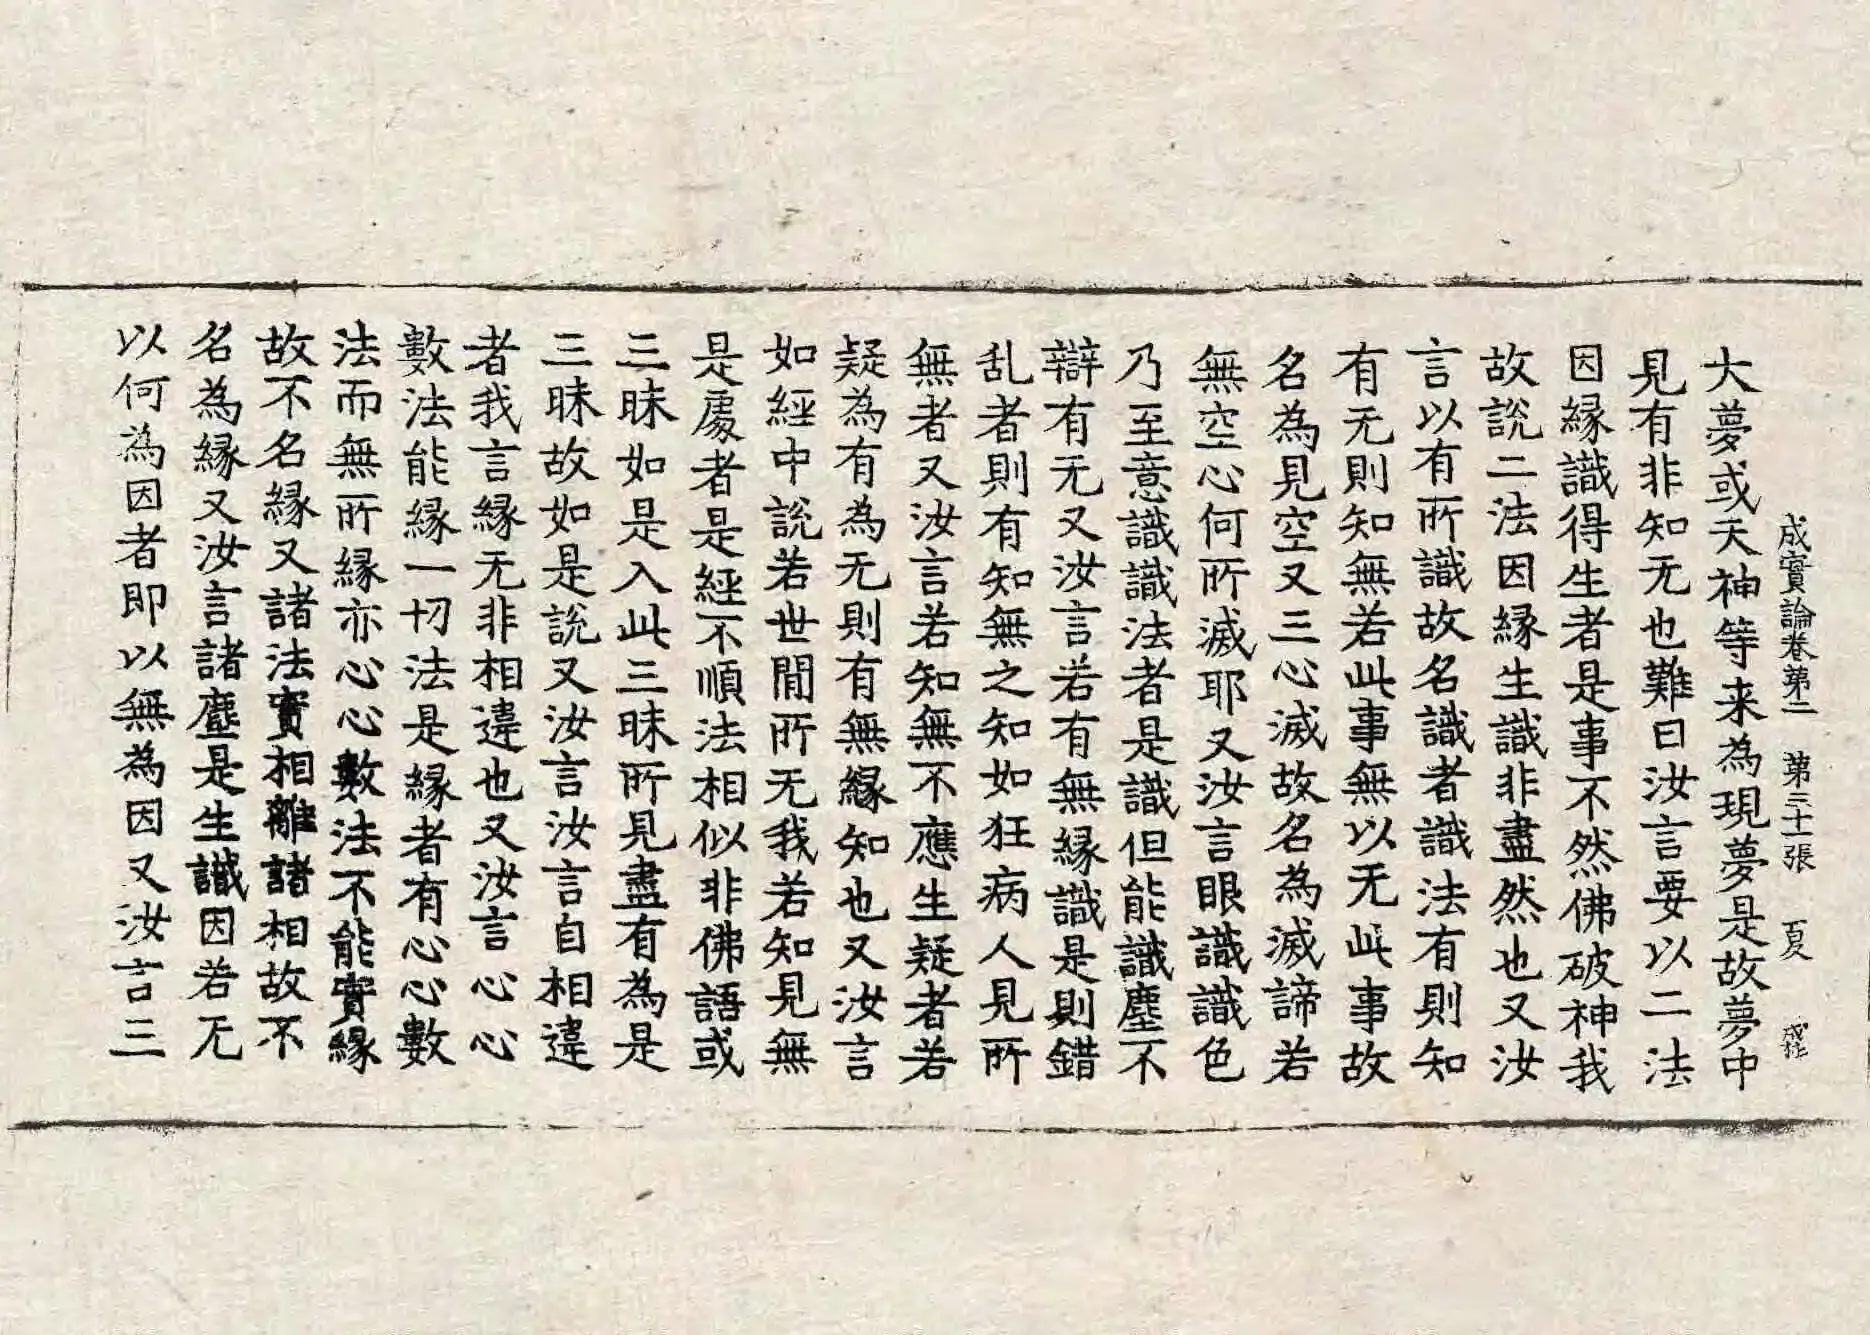 成實論卷第二 第三十一張 夏
大夢或天神等来為現夢是故夢中
見有非知无也難曰汝言要以二法
因緣識得生者是事不然佛破神我
故說二法因緣生識非盡然也又汝
言以有所識故名識者識法有則知
有无則知無若此事無以无此事故
名為見空又三心滅故名為滅諦若
無空心何所滅耶又汝言眼識識色
乃至意識識法者是識但能識塵不
辯有无又汝言若有無緣識是則錯
乱者則有知無之知如狂病人見所
無者又汝言若知無不應生疑者若
疑為有為无則有無緣知也又汝言
如經中說若世間所无我若知見無
是處者是經不順法相似非佛語或
三昧如是入此三昧所見盡有為是
三昧故如是說又汝言汝言自相違
者我言緣无非相違也又汝言心心
數法能緣一切法是緣者有心心數
法而無所緣亦心心數法不能實緣
故不名緣又諸法實相離諸相故不
名為緣又汝言諸塵是生識因若无
以何為因者即以無為因又汝言三